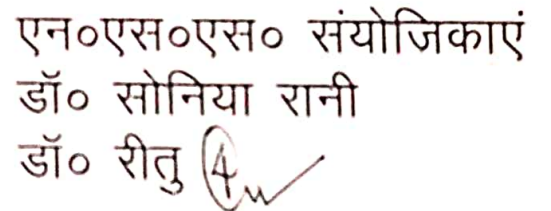 एन०एस०एस० संयोजिकाएं
डॉ० सोनिया रानी
डॉ० रीतु 4